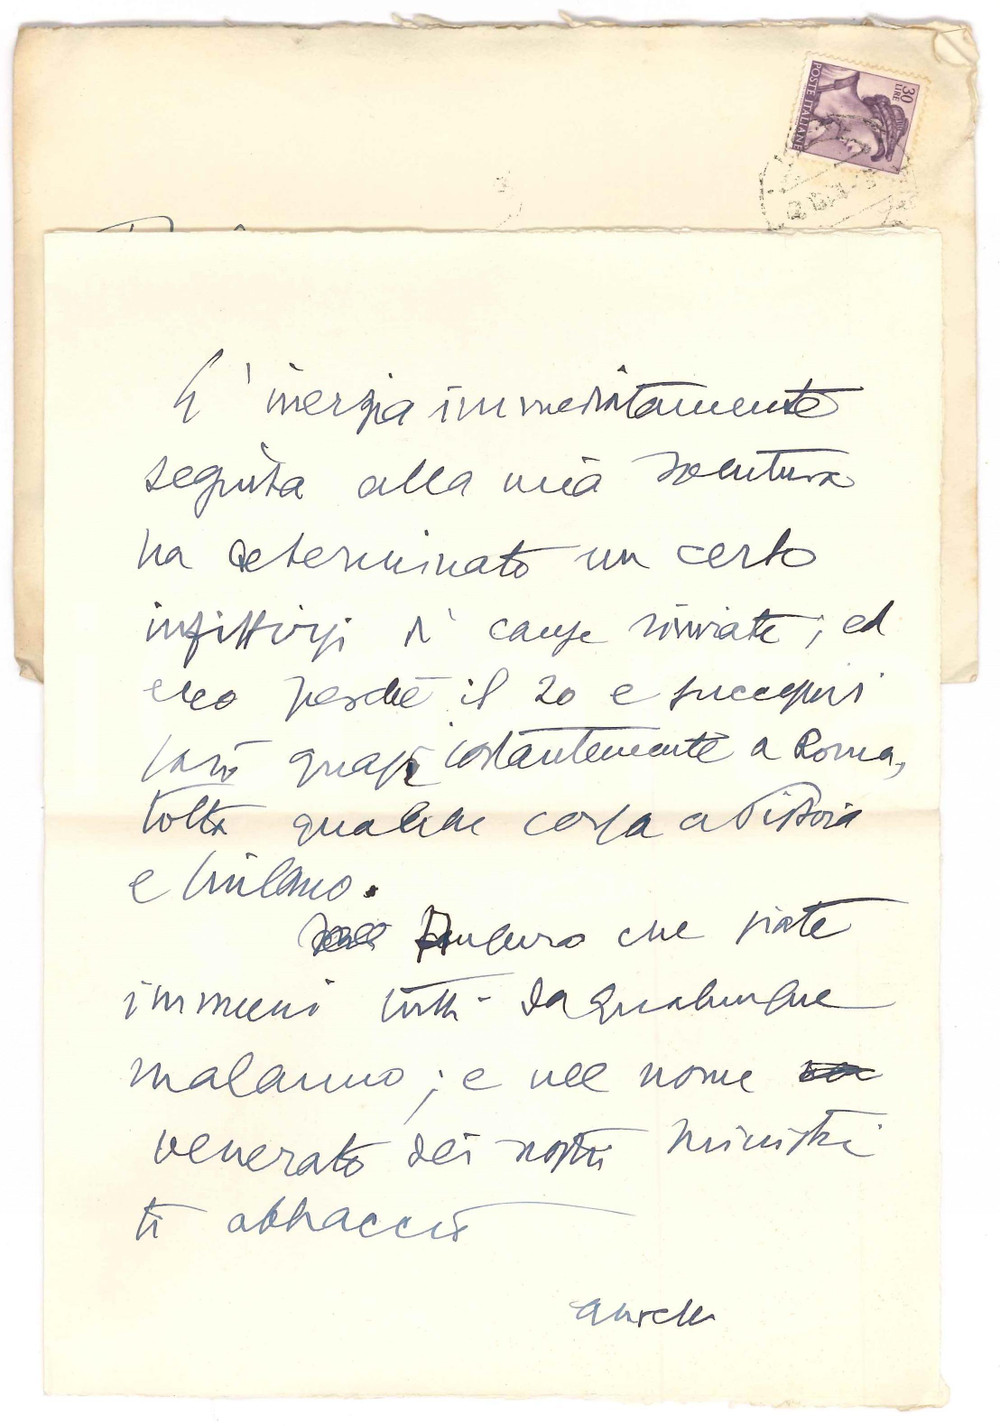 30
LIRE
POSTE ITALIANE
L'inerzia immediatamente
seguita alla mia
ha determinato un certo
infittirsi di cause rinviate; ed
ecco perché il 20 e successivi
sarò quasi costantemente a Roma,
tolta qualche corsa a Pistoia
e Milano.
Auguro che siate
immuni tutti da qualunque
malanno; e nel nome
venerato dei nostri ministri
ti abbraccio